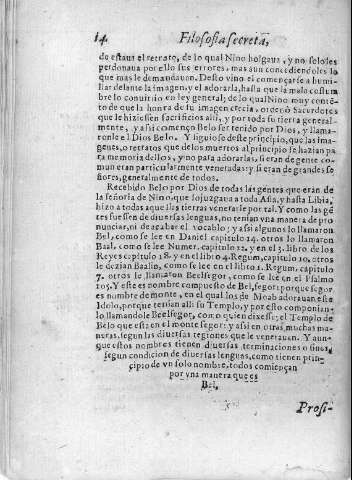 14. Filosofia secreta,
de estaua el retrato, de lo qual Nino holgaua, y no solo les
perdonaua por ello sus errores, mas aun concediendoles lo
que mas le demandauan. Desto vino el començarse a humi-
llar delante la imagen, y el adorarla, hasta que la mala costum
bre lo conuirtio en ley general, de lo qual Nino muy conten-
to de que la honra de su imagen crecia, ordenò Sacerdotes
que le hiziessen sacrificios alli, y por toda su tierra general-
mente, y assi començo Belo ser tenido por Dios, y llama-
ronle el Dios Belo. Y siguiose deste principio, que las ima-
genes, o retratos que de los muertos al principio se hazian pa
ra memoria dellos, y no para adorarlas, si eran de gente co-
mun eran particularmente veneradas: y si eran de grandes se
ñores, generalmente de todos.
Recebido Belo por Dios de todas las gentes que eran de
la señoria de Nino, que sojuzgaua a toda Asia, y hasta Libia,
hizo a todas aquellas tierras venerarle por tal. Y como las gẽ
tes fuessen de diuersas lenguas, no tenian vna manera de pro
nunciar, ni de acabar el vocablo; y assi algunos lo llamaron
Bel, como se lee en Daniel capitulo 14. otros lo llamaron
Baal, como se lee Numer. capitulo 22. y en el 3. libro de los
Reyes capitulo 18. y en el libro 4. Regum, capitulo 10. otros
le dezian Baalin, como se lee en el libro 1. Regum, capitulo
7. otros le llamaron Beelfegor, como se lee en el Psalmo
105. Y este es nombre compuesto de Bel, segor: porque segor
es nombre de monte, en el qual los de Moab adorauan este
Idolo, porque tenian alli su Templo, y por esto componian-
lo llamandole Beelfegor, como quien dixesse: el Templo de
Belo que està en el monte segor: y assi en otras muchas ma-
neras, segun las diuersas regiones que le venerauan. Y aun-
que estos nombres tienen diuersas terminaciones o fines,
segun condicion de diuersas lenguas, como tienen prin-
cipio de vn solo nombre, todos comiençan
por vna manera que es
Bel,
Prosi-